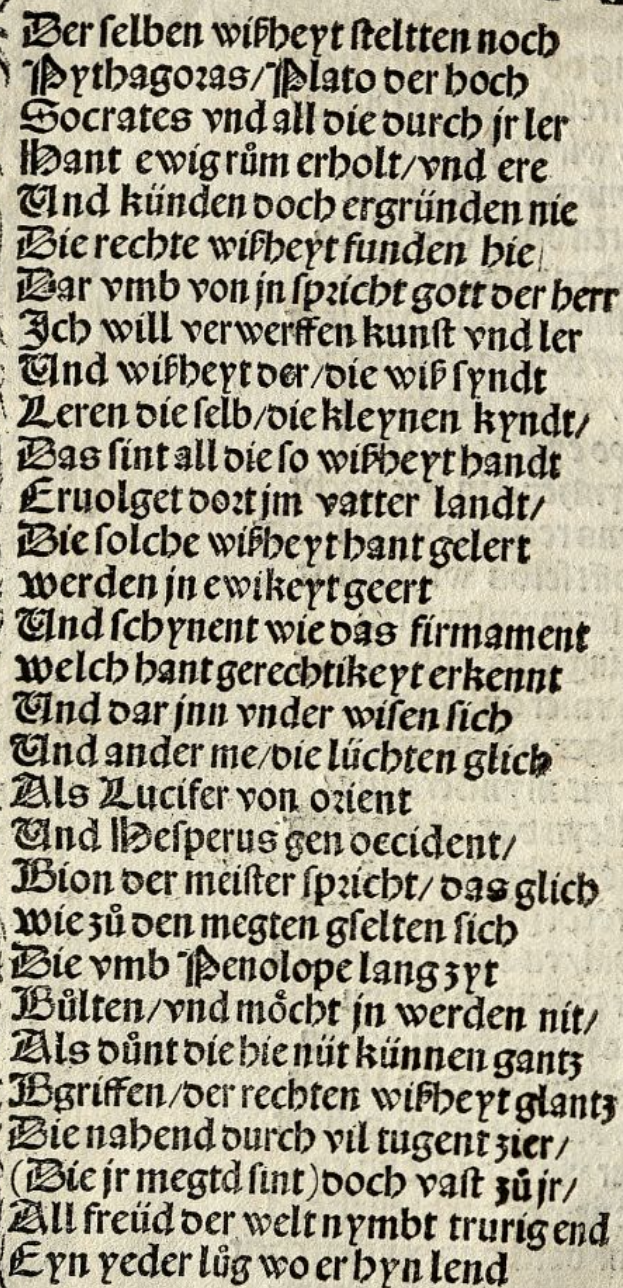 Der selben wißheyt steltten noch
Pythagoras/Plato der hoch
Socrates vnd all die durch jr ler
Hant ewig rům erholt/vnd ere
Und künden doch ergründen nie
Die rechte wißheyt funden hie
Dar vmb von jn spricht gott der herr
Ich will verwerffen kunst vnd ler
Und wißheyt der/die wiß syndt
Leren die selb/die kleynen kyndt/
Das sint all die so wißheyt handt
Eruolget dort jm vatter landt/
Die solche wißheyt hant gelert
werden jn ewikeyt geert
Und schynent wie das firmament
welch hant gerechtikeyt erkennt
Und dar jnn vnder wisen sich
Und ander me/die lüchten glich
Als Lucifer von orient
Und Hesperus gen occident/
Bion der meister spricht/das glich
wie zů den megten gselten sich
Die vmb Penolope lang zyt
Bůlten/vnd möcht jn werden nit/
Als důnt die hie nüt künnen gantz
Bgriffen/der rechten wißheyt glantz
Die nahend durch vil tugent zier/
(Die jr megtd sint)doch vast zů jr/
All freüd der welt nymbt trurig end
Eyn yeder lůg wo er hyn lend